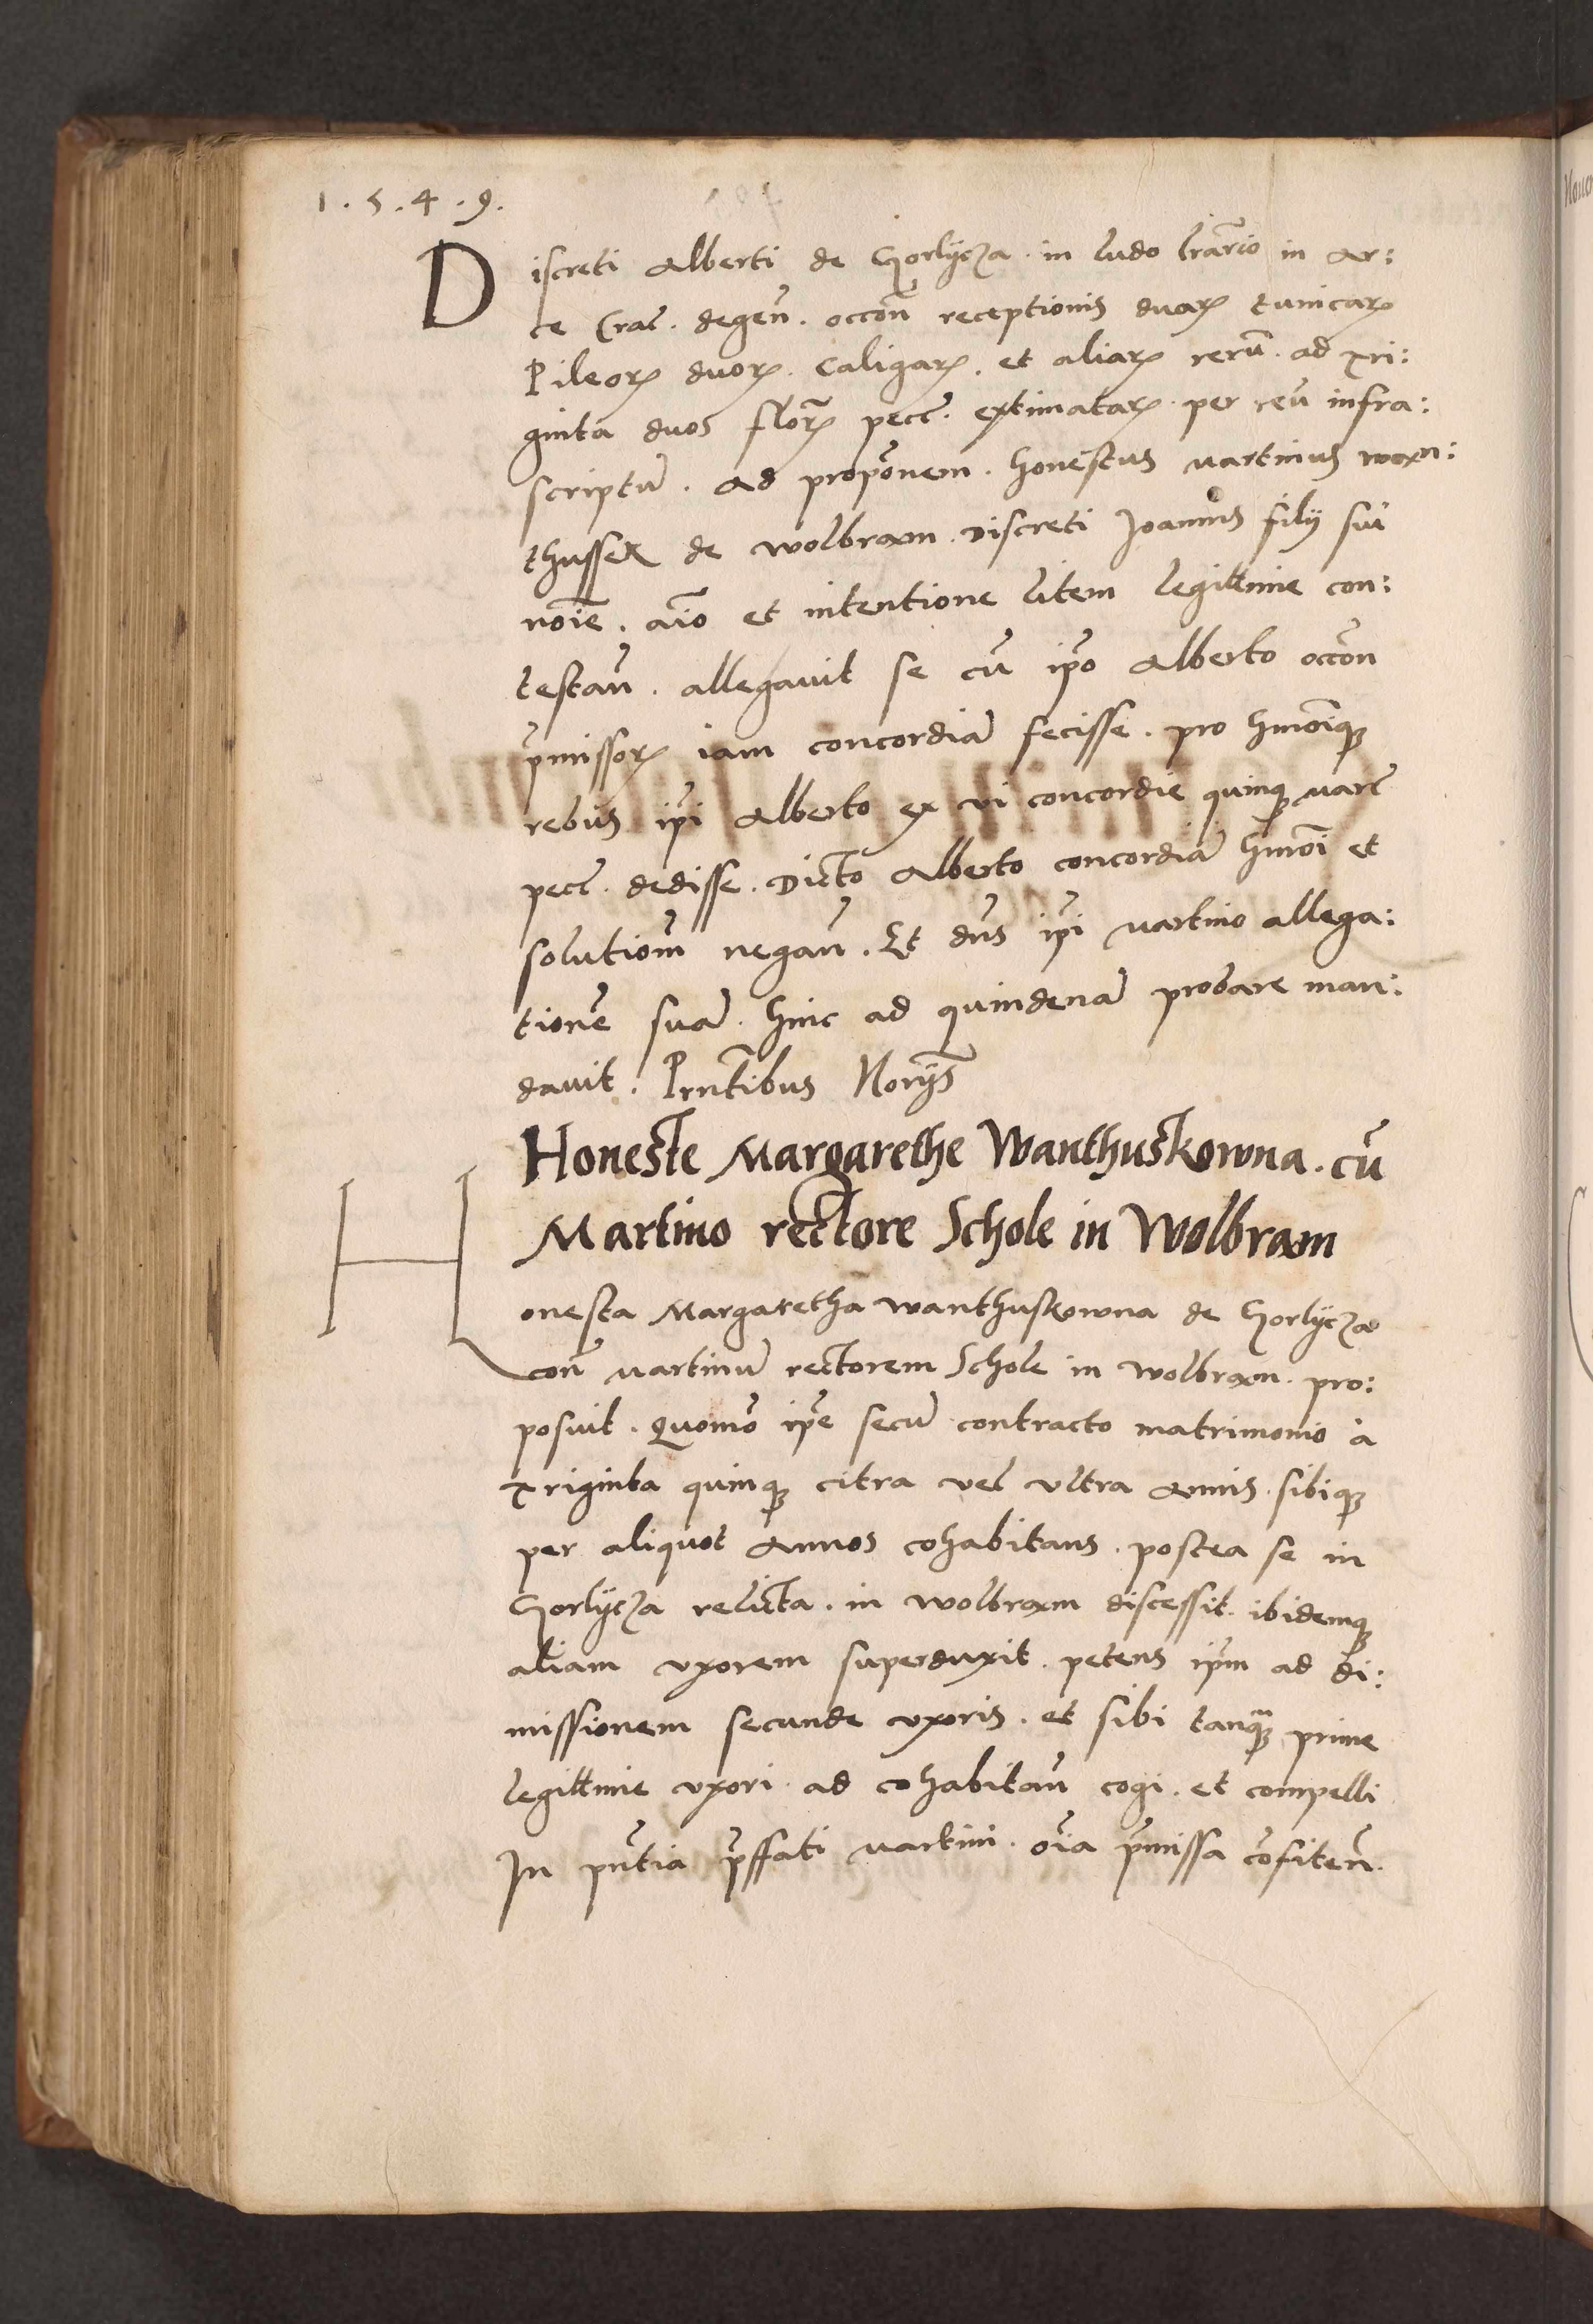 1.5.4.9.
Discreti Alberti de Gorlycza in ludo l̃rario in Ar:
ce Crac̃. degeñ. occõn receptionis duarꝝ tunicarꝝ
Pileorꝝ duorꝝ. Caligarꝝ. et aliarꝝ rerũ. ad tri:
ginta duos florꝝ pecc̃. extimatarꝝ per reũ infra:
scriptũ. Ad propõnem. honestus Martinus Wan:
thussek de Wolbram. Discreti Joannis filij sui
noĩe. aĩo et intentione litem legittime con:
testañ. allegavit se cũ ip̃o Alberto occõn
p̃missorꝝ iam concordiã fecisse. pro hmõiqꝫ
rebus ip̃i Alberto ex vi concordie quinqꝫ marc̃
pecc̃. dedisse. Dicto Alberto concordiã hmõi et
solutioñm negañ. Et dñs ip̃i Martino allega:
tionẽ suã. hinc ad quindenã probare man:
davit. Prñtibus Norijs̃
Honeste Margarethe Wanthuskowna. cũ
Martino rectore Schole in Wolbram
Honesta Margaretha Wanthuskowna de Gorlycza
coñ Martinũ rectorem Schole in Wolbram. pro:
posuit. Quomõ ip̃e secũ contracto matrimonio à
triginta quinqꝫ citra vel ultra Annis. sibiqꝫ
per aliquot Annos cohabitans. postea se in
Gorlycza relicta. in Wolbram discessit. ibidemqꝫ
aliam uxorem superduxit. petens ip̃m ad di:
missionem secunde uxoris. et sibi tanqꝫ̃ prime
legittime uxori. ad cohabitañ cogi. et compelli
In pñtia p̃ffati Martini. oĩa p̃missa cõfiteñ.